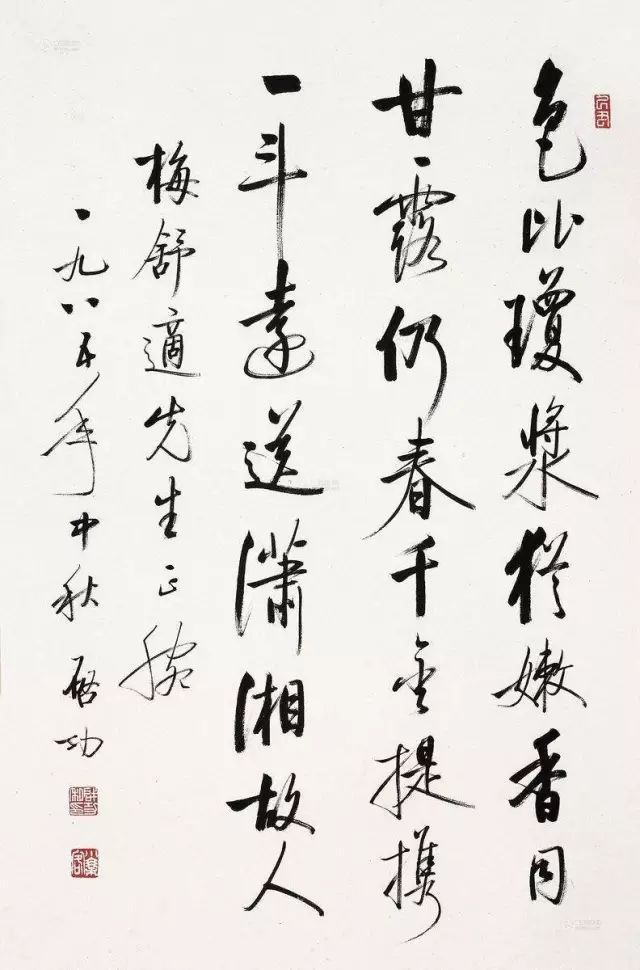 色比瓊漿猶嫩香同
甘露仍春千金提携
一斗遠送瀟湘故人
梅舒適先生正腕
一九八五年中秋 啓功